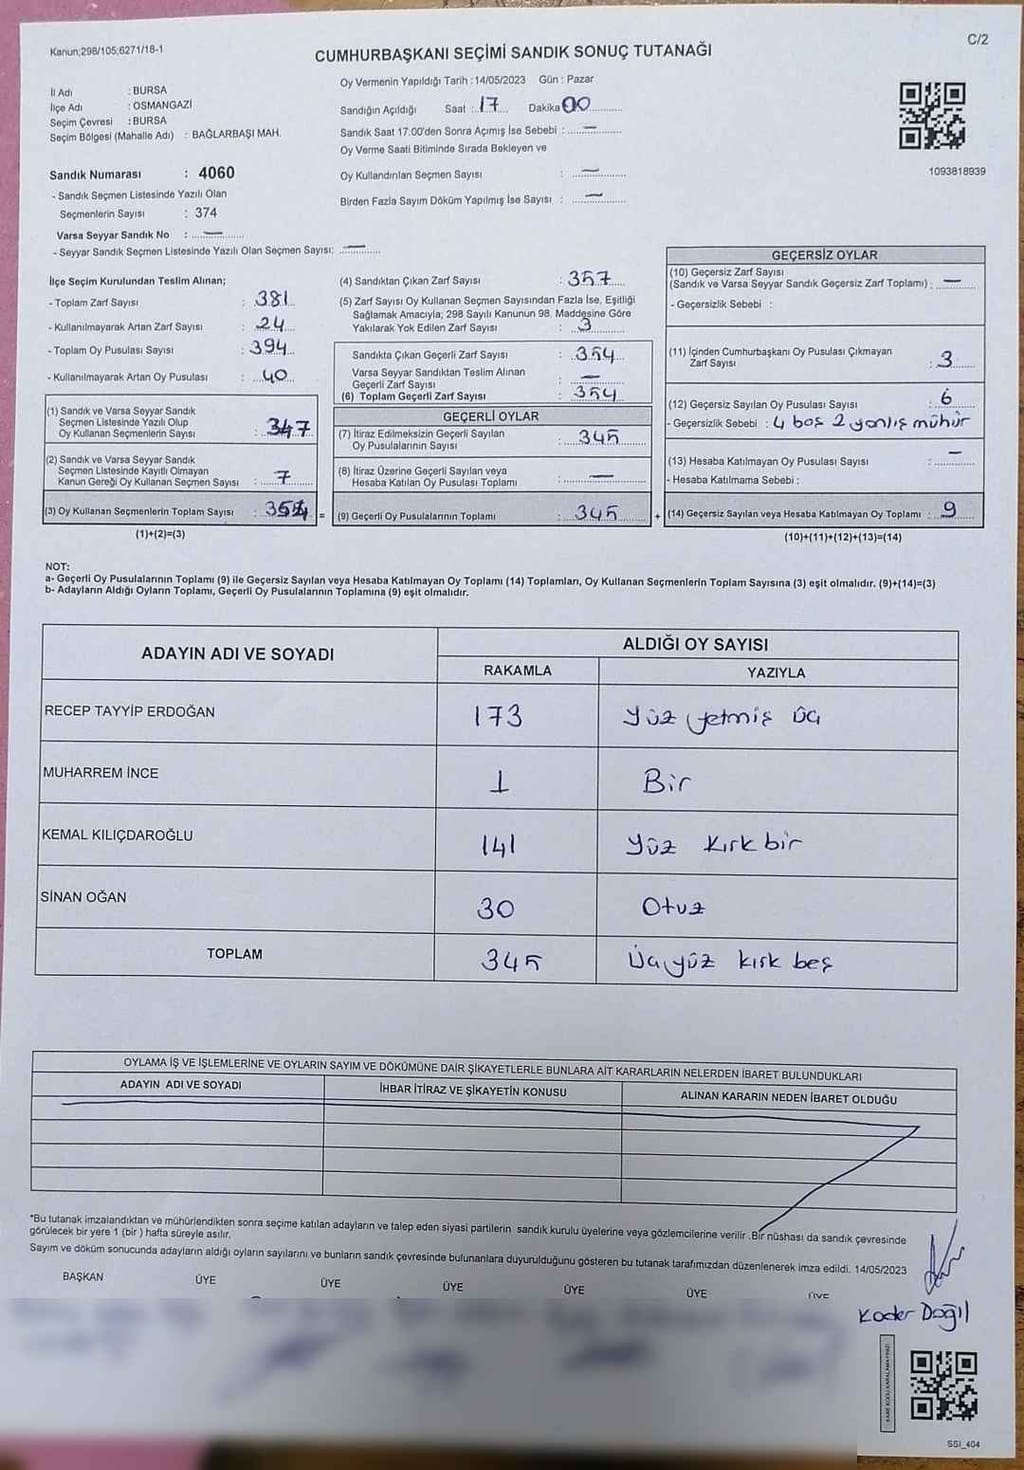 Kanun;298/105;6271/18-1
C/2
CUMHURBAŞKANI SEÇİMİ SANDIK SONUÇ TUTANAĞI
İl Adı : BURSA
İlçe Adı : OSMANGAZİ
Seçim Çevresi : BURSA
Seçim Bölgesi (Mahalle Adı) : BAĞLARBAŞI MAH.
Oy Vermenin Yapıldığı Tarih : 14/05/2023 Gün : Pazar
Sandığın Açıldığı Saat : 17 Dakika 00
Sandık Saat 17.00'den Sonra Açımış İse Sebebi : —
Oy Verme Saati Bitiminde Sırada Bekleyen ve
Oy Kullandırılan Seçmen Sayısı : —
Birden Fazla Sayım Döküm Yapılmış İse Sayısı : —
1093818939
Sandık Numarası : 4060
- Sandık Seçmen Listesinde Yazılı Olan
Seçmenlerin Sayısı : 374
Varsa Seyyar Sandık No : —
- Seyyar Sandık Seçmen Listesinde Yazılı Olan Seçmen Sayısı: —
İlçe Seçim Kurulundan Teslim Alınan;
- Toplam Zarf Sayısı : 381
- Kullanılmayarak Artan Zarf Sayısı : 24
- Toplam Oy Pusulası Sayısı : 394
- Kullanılmayarak Artan Oy Pusulası : 40
(1) Sandık ve Varsa Seyyar Sandık
Seçmen Listesinde Yazılı Olup
Oy Kullanan Seçmenlerin Sayısı : 347
(2) Sandık ve Varsa Seyyar Sandık
Seçmen Listesinde Kayıtlı Olmayan
Kanun Gereği Oy Kullanan Seçmen Sayısı : 7
(3) Oy Kullanan Seçmenlerin Toplam Sayısı : 354 =
(1)+(2)=(3)
(4) Sandıktan Çıkan Zarf Sayısı : 357
(5) Zarf Sayısı Oy Kullanan Seçmen Sayısından Fazla İse, Eşitliği
Sağlamak Amacıyla; 298 Sayılı Kanunun 98. Maddesine Göre
Yakılarak Yok Edilen Zarf Sayısı : 3
Sandıkta Çıkan Geçerli Zarf Sayısı : 354
Varsa Seyyar Sandıktan Teslim Alınan
Geçerli Zarf Sayısı : —
(6) Toplam Geçerli Zarf Sayısı : 354
GEÇERLİ OYLAR
(7) İtiraz Edilmeksizin Geçerli Sayılan
Oy Pusulalarının Sayısı : 345
(8) İtiraz Üzerine Geçerli Sayılan veya
Hesaba Katılan Oy Pusulası Toplamı : —
(9) Geçerli Oy Pusulalarının Toplamı : 345 +
GEÇERSİZ OYLAR
(10) Geçersiz Zarf Sayısı
(Sandık ve Varsa Seyyar Sandık Geçersiz Zarf Toplamı) : —
- Geçersizlik Sebebi :
(11) İçinden Cumhurbaşkanı Oy Pusulası Çıkmayan
Zarf Sayısı : 3
(12) Geçersiz Sayılan Oy Pusulası Sayısı : 6
- Geçersizlik Sebebi : 4 boş 2 yanlış mühür
(13) Hesaba Katılmayan Oy Pusulası Sayısı : —
- Hesaba Katılmama Sebebi :
(14) Geçersiz Sayılan veya Hesaba Katılmayan Oy Toplamı : 9
(10)+(11)+(12)+(13)=(14)
NOT:
a- Geçerli Oy Pusulalarının Toplamı (9) ile Geçersiz Sayılan veya Hesaba Katılmayan Oy Toplamı (14) Toplamları, Oy Kullanan Seçmenlerin Toplam Sayısına (3) eşit olmalıdır. (9)+(14)=(3)
b- Adayların Aldığı Oyların Toplamı, Geçerli Oy Pusulalarının Toplamına (9) eşit olmalıdır.
ADAYIN ADI VE SOYADI
ALDIĞI OY SAYISI
RAKAMLA YAZIYLA
RECEP TAYYİP ERDOĞAN 173 Yüz yetmiş üç
MUHARREM İNCE 1 Bir
KEMAL KILIÇDAROĞLU 141 Yüz kırk bir
SİNAN OĞAN 30 Otuz
TOPLAM 345 Üçyüz kırk beş
OYLAMA İŞ VE İŞLEMLERİNE VE OYLARIN SAYIM VE DÖKÜMÜNE DAİR ŞİKAYETLERLE BUNLARA AİT KARARLARIN NELERDEN İBARET BULUNDUKLARI
ADAYIN ADI VE SOYADI İHBAR İTİRAZ VE ŞİKAYETİN KONUSU ALINAN KARARIN NEDEN İBARET OLDUĞU
*Bu tutanak imzalandıktan ve mühürlendikten sonra seçime katılan adayların ve talep eden siyasi partilerin sandık kurulu üyelerine veya gözlemcilerine verilir .Bir nüshası da sandık çevresinde
görülecek bir yere 1 (bir ) hafta süreyle asılır.
Sayım ve döküm sonucunda adayların aldığı oyların sayılarını ve bunların sandık çevresinde bulunanlara duyurulduğunu gösteren bu tutanak tarafımızdan düzenlenerek imza edildi. 14/05/2023
BAŞKAN ÜYE ÜYE ÜYE ÜYE ÜYE ÜYE
Kader Dağıl
SSI_404